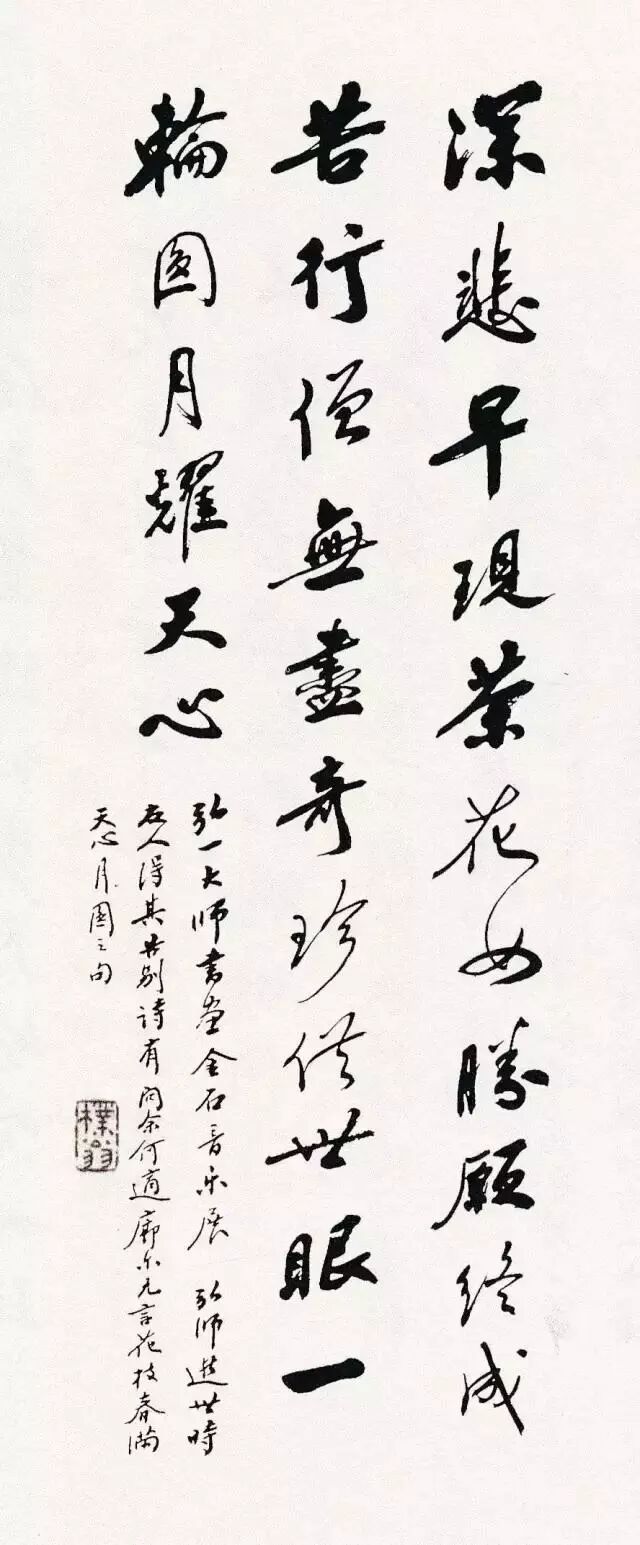 深悲早現茶花女勝願終成
苦行僧無盡奇珍供世眼一
輪圓月耀天心
弘一大師書畫金石音樂展 弘師逝世時
友人得其告別詩有問余何適廓尔无言花枝春滿
天心月圓之句
樸翁